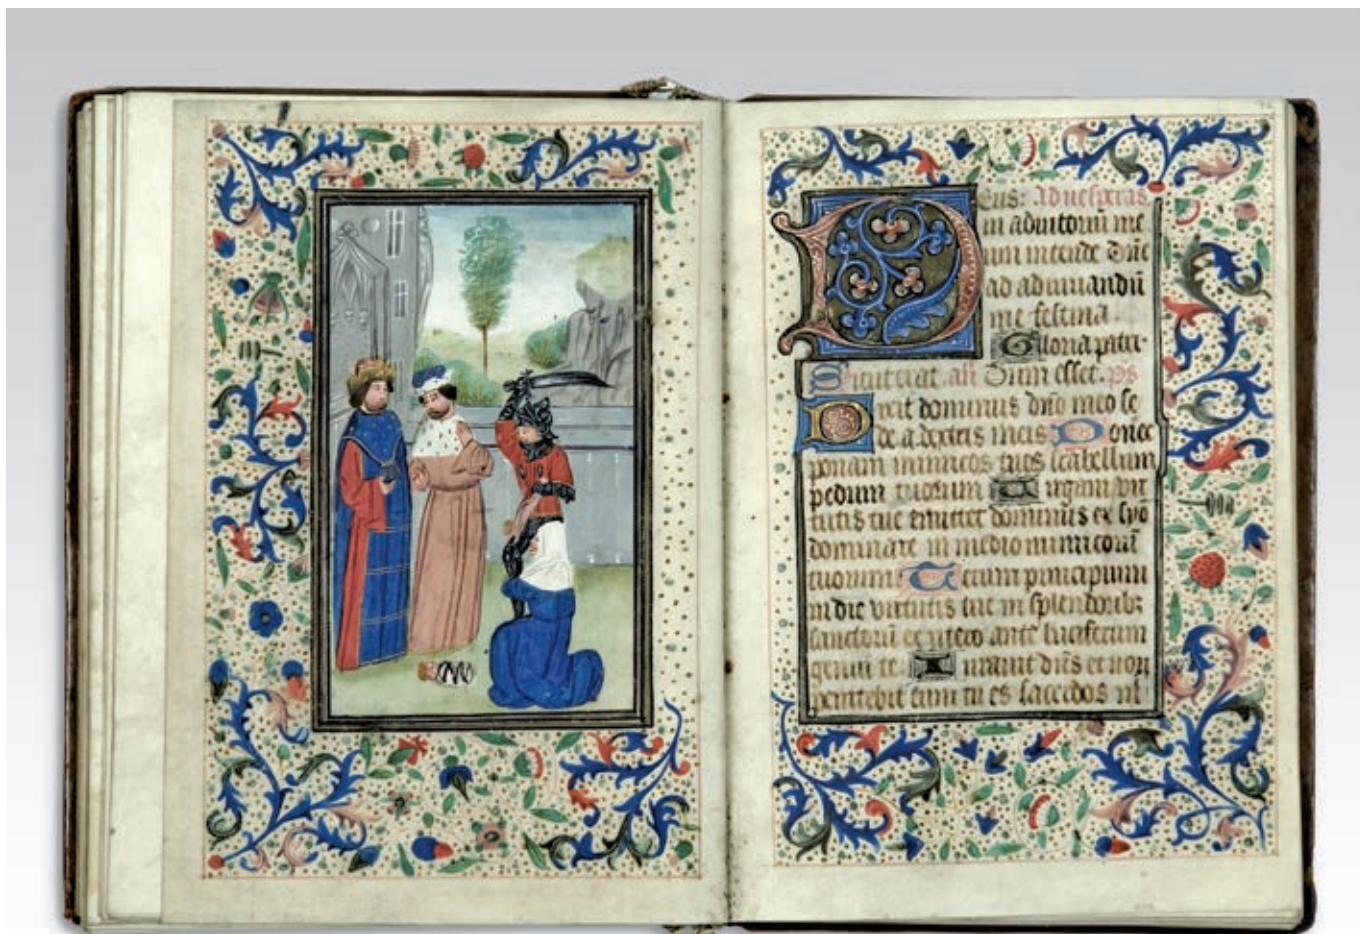 Deus: Ad vesperas
in adiutoriū me
um intende Dn̄e
ad adiuuandū
me festina
Gloria patri·
Sicut erat. an̄ Dum esset. ps
Dixit dominus dn̄o meo se
de a dextris meis Donec
ponam inimicos tuos scabellum
pedum tuorum Uirgam vir
tutis tue emittet dominus ex syo
dominare in medio inimicorū
tuorum Tecum principium
in die virtutis tue in splendoribꝫ
sanctorū ex utero ante luciferum
genui te Iurauit dn̄s et non
penitebit eum tu es sacerdos in